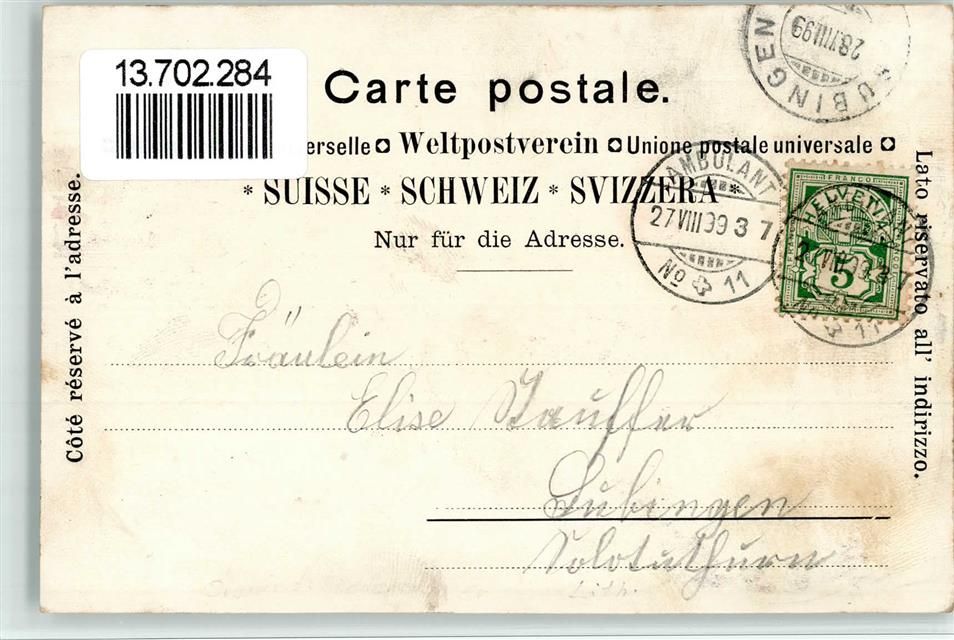 13.702.284
Carte postale.
erselle Weltpostverein Unione postale universale
* SUISSE * SCHWEIZ * SVIZZERA *
Nur für die Adresse.
Côté réservé à l'adresse.
Lato riservato all' indirizzo.
UBINGEN
28 VIII 99
AMBULANT
27 VIII 99 3 7
No 11
FRANCO
HELVETIA
5
11
Fräulein
Elise Stauffer
Subingen
Solothurn